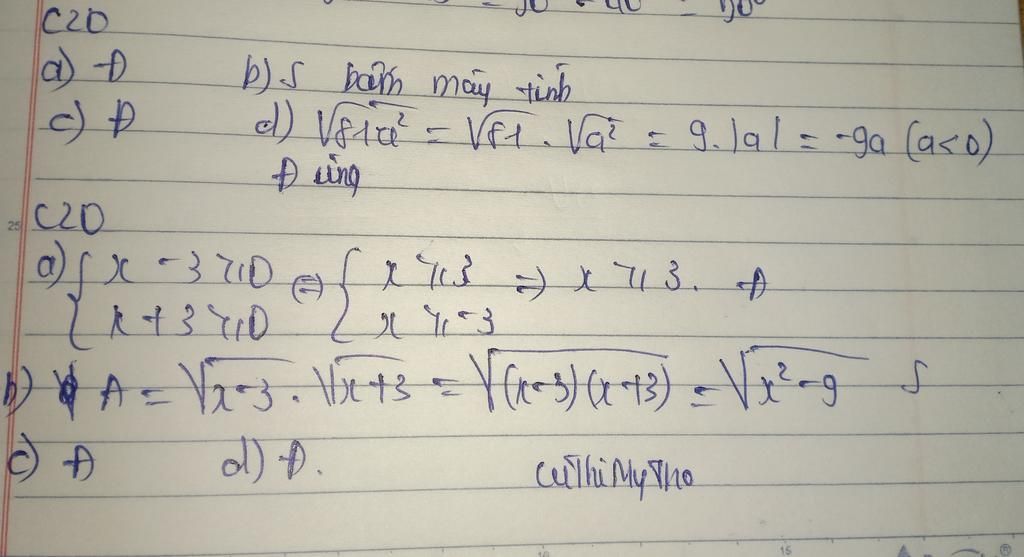 - 90 - 40 = 50°
C20
a) Đ b) S bấm máy tính
c) Đ d) √81a² = √81 . √a² = 9.|a| = -9a (a<0)
Đúng
25
C20
a) { x - 3 ≥ 0 ⇔ { x ≥ 3 ⇒ x ≥ 3. Đ
x + 3 ≥ 0 x ≥ -3
b) A = √x-3 . √x+3 = √(x-3)(x+3) = √x²-9 S
c) Đ d) Đ.
CuThiMyTho
10 15 ®